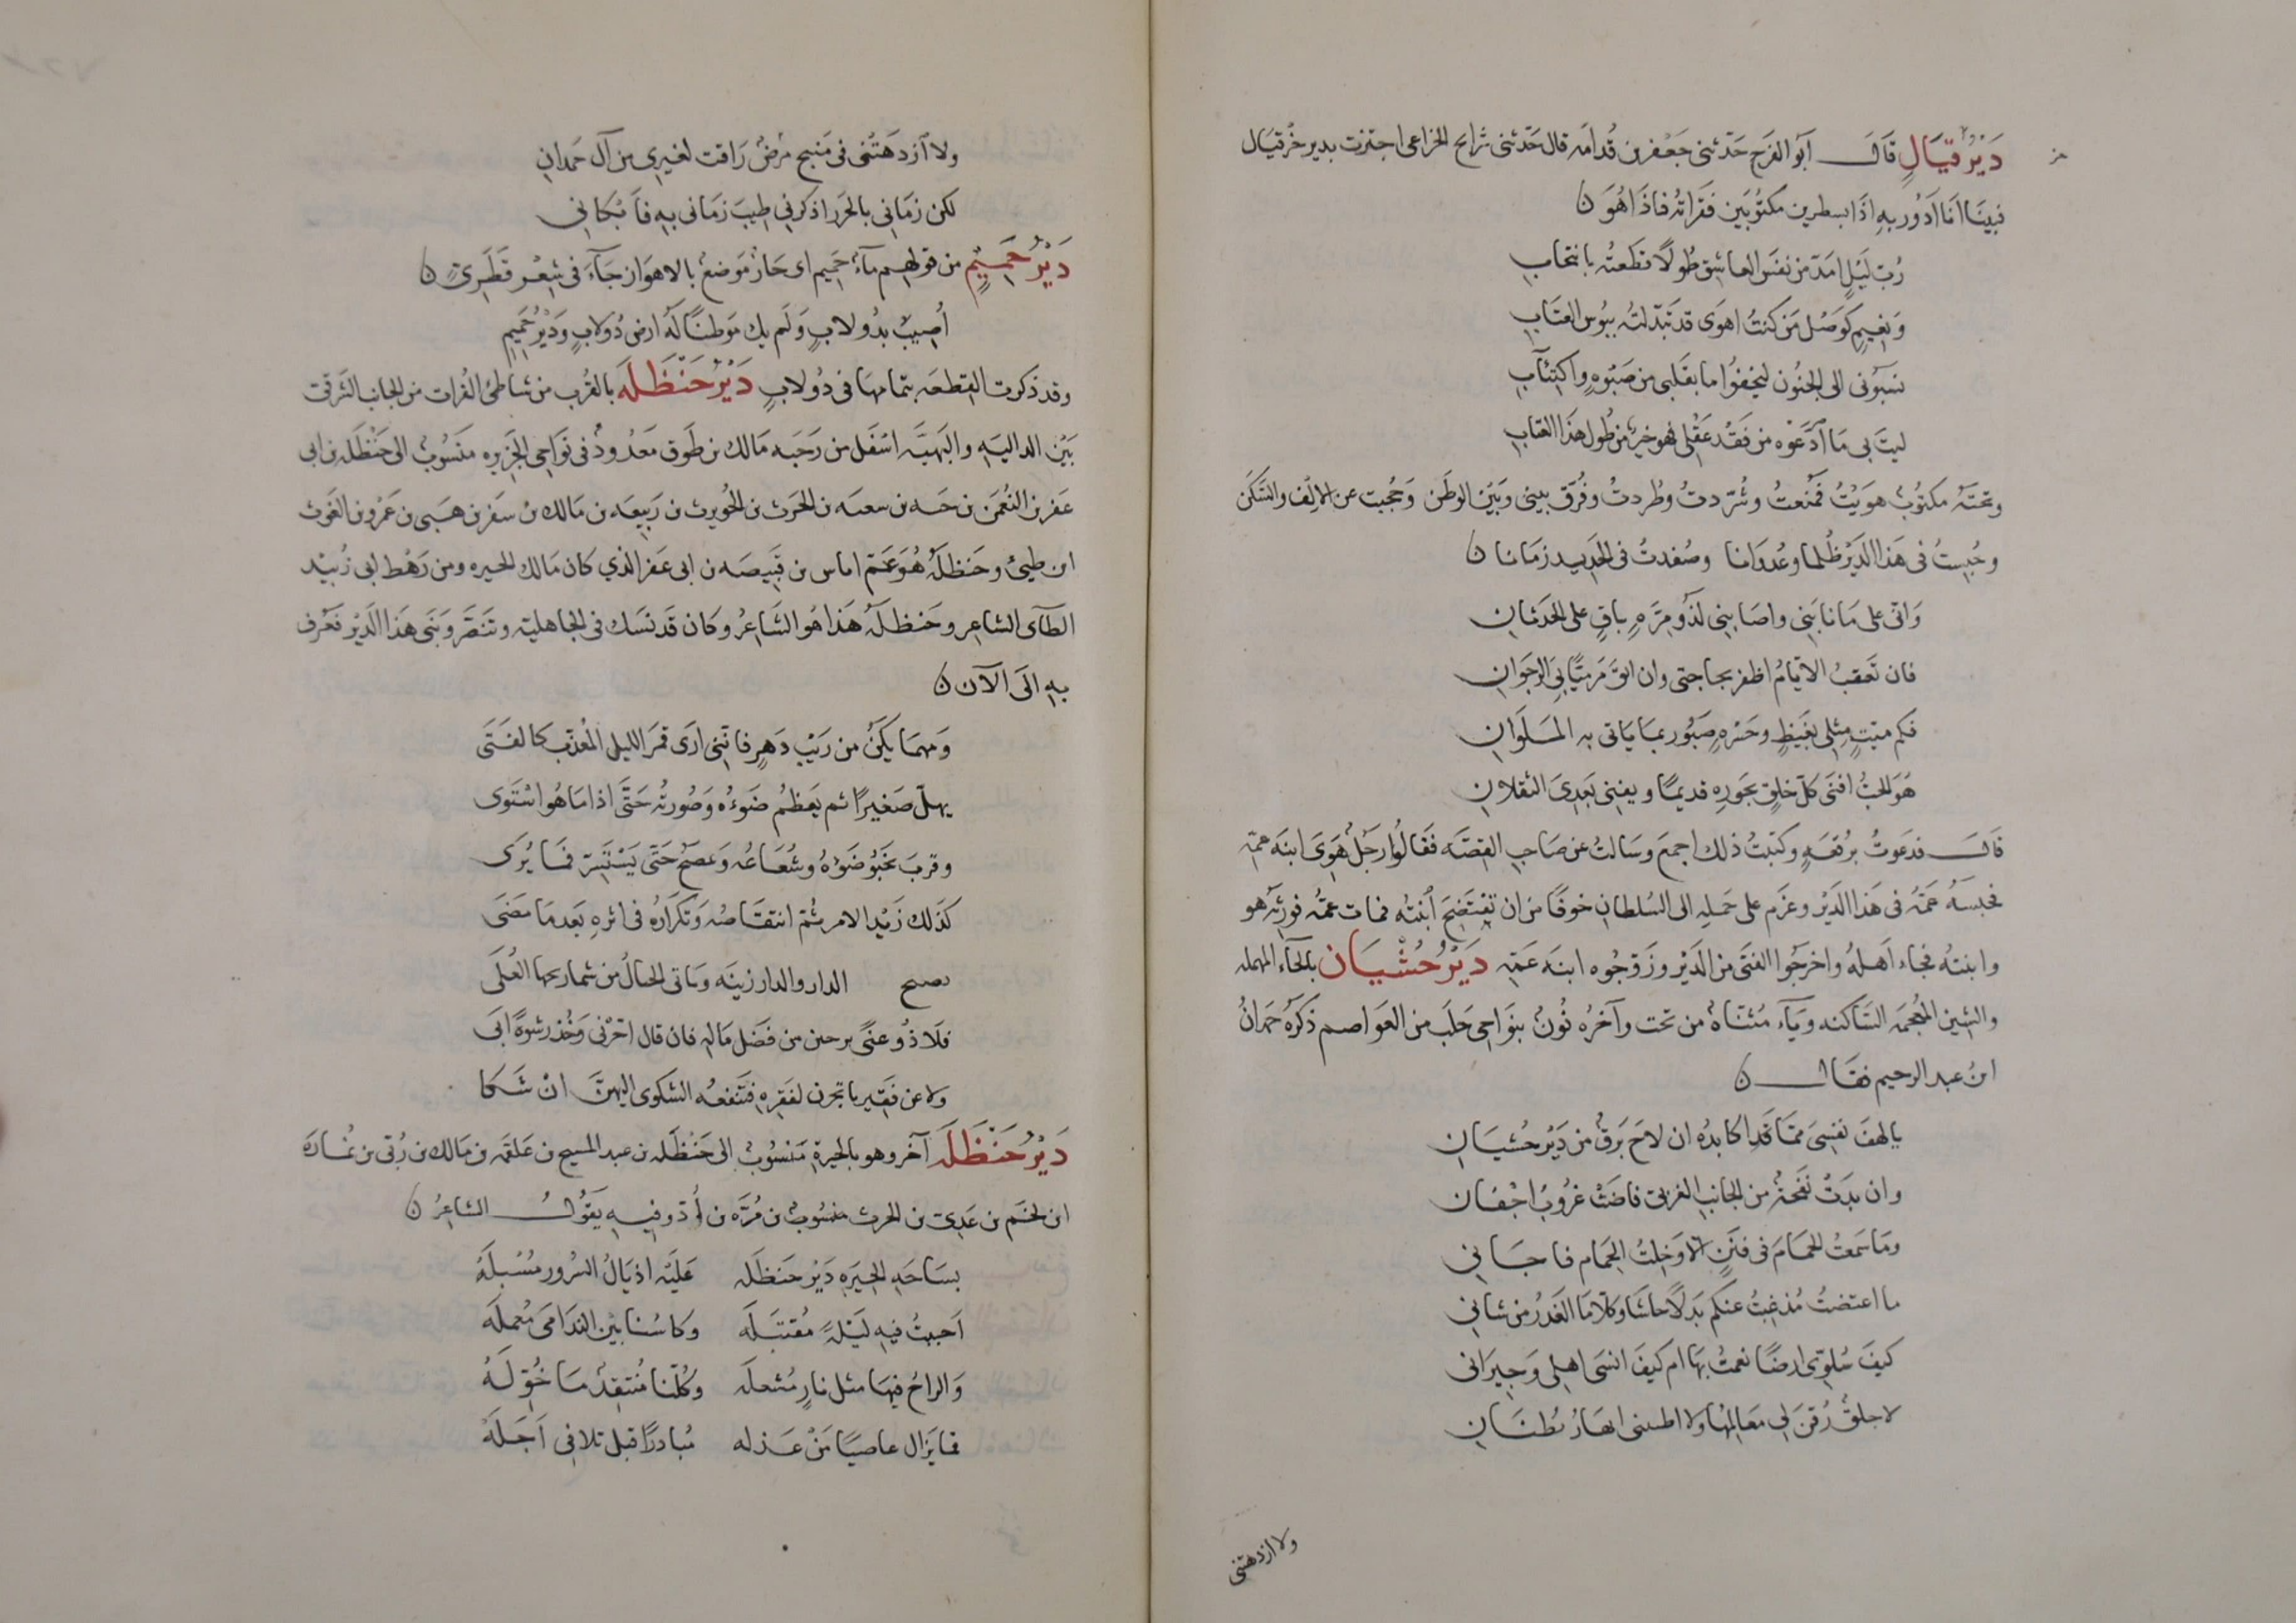 دَيْرُ قيَالٍ قَالَ أبو الفرج حَدّثنى جَعفر بن قُدامَه قال حَدّثنى شرايح الخزاعى اجتزت بدير حزقيال
فبينَا انَا ادَوُر بهِ اذَا بسطرين مكتوبَين فقَراته فاذَا هُوَ ن
رُبّ لَيْلٍ امَدّ من نفسَ العاشِق طُولًا قطَعتُه بانتحابِ
وَنعيمٍ كوَصْل مَن كنتُ اهوَى قد تَبدّلتُه ببُوس العتَابِ
نسَبوُنى الى الجنُون ليخفُوا ما بقَلبى من صَبْوهٍ واكتِئابِ
ليتَ بى مَا ادَّعَوْه من فَقْد عَقْلى فهو خيرٌ من طُول هذَا العتابِ
وتحتَهُ مكتوُبٌ هوَيْتُ فمُنعتُ وشُرّدتُ وطُردتُ وفُرّقَ بينى وبَيْن الوطَن وَحُجبت عن الالِف والسَّكَن
وحُبِستُ فى هَذا الدَيْر ظُلما وعُدوَانا وصُفدتُ فى الحَديد زمَانا ن
وَانّى على مَا نابَنِى واصَابِنِى لذُو مِرّهٍ باقٍ على الحَدثانِ
فان تَعقبُ الايّامُ اظفر بحاجتى وان ابقَ مَرميًّا بىَ الرجَوانِ
فكم ميّتٍ مِثلى بغَيظٍ وحَسْرهٍ صَبُور بما يَاتى به المَلوَانِ
هُوَ الحبُّ افنَى كلّ خلقٍ بجَورِه قديمًا ويفنى بَعدِىَ الثقلانِ
قَالَ فدعَوتُ برقعَهٍ وكتبتُ ذلك اجمعَ وسَالتُ عن صَاحبِ القصّه فقَالُوا رجُلٌ هَوِىَ ابنَه عمّه
فحبسَهُ عَمّهُ فى هَذا الدَيْر وعزَم على حَملِه الى السُلطان خوفًا من ان تفتَضِحَ ابنتُه فمات عمّهُ فورثه هو
وابنتُه فجاء اَهلهُ واخرجُوا الفتَى من الدَيْر وزَوّجُوه ابنَه عَمّهِ دَيْرُ حُشْيَان بالحَاء المهمله
والشين المُعجمَه السَاكنه ويَآء مُثناهٌ من تحت وآخرُه نُونٌ بنَواحِى حَلَبَ من العَواصم ذَكرَهُ حَمدانُ
ابنُ عبد الرحيم فقَال ن
يالهفَ نفسِىَ ممّا قَد اكابدُه ان لاحَ بَرقٌ من دَيْر حُشيَانِ
وان بدَتْ نفحَةٌ من الجانبِ الغربىّ فاضَتْ غُروبُ اجْفَان
ومَا سَمعتُ الحمَامَ فى فنَنٍ الّا وَخِلتُ الحِمَام فاجَانِى
ما اعتضتُ مُذ غبتُ عنكم بَدلًا حَاشَا وكلّا مَا الغَدرُ من شانى
كيفَ سُلوّى ارضًا نعمتُ بهَا ام كيفَ انسَى اهلى وَجيرَانى
لا جلقٌ رُقنَ لى مَعَالمُهَا ولا اطبتنى انهارُ بُطنَانِ
ولا ازدهتنى
ولا ازدهَتْنى فى مَنبج فُرضٌ رَاقت لغيرى من آل حَمدانِ
لكن زمَانى بالجَزر اذكرنى طِيبَ زمَانى بهِ فاَبْكانِى
دَيْرُ حَمِيمٍ من قولهم مآءٌ حَمِيم اى حَارٌ مَوضعٌ بالاهوَاز جَآءَ فى شِعْر قَطَرِىّ ن
اُصِيبَ بدُولابٍ وَلَم يك مَوطنًا لهُ ارض دُولابٍ وَدَيْرُ حَمِيمِ
وقد ذكرت القطعَه بتمامهَا فى دُولابٍ دَيْرُ حَنْظَلَه بالقُرب من شاطئ الفُرات من الجانب الشَرقىّ
بَيْن الداليَه والبَهنَسه اسْفل من رَحَبَه مَالك بن طَوق مَعدُودٌ فى نَواحِى الجَزيره منسُوبٌ الى حَنْظَله بن ابى
عَفر بن النُعمَن بن حيه بن سعنه بن الحَرث بن الحُويرث بن رَبيعَه بن مَالك بن سَفر بن هَنِى بن عَمْرو بن الغَوث
ابن طيئ وحَنظلَهُ هُوَ عَمّ اياس بن قَبِيصَه بن ابى عَفر الذى كان مَالك الحيره ومن رَهْط ابى زُبيْد
الطَآى الشاعِر وحَنظلَهُ هَذا هُو الشَاعرُ وكَان قَد نسَك فى الجَاهليّه وتنَصَّر وَبَنَى هَذا الدَيْر فعُرف
بهِ الَى الآن ن
وَمهمَا يكُنْ من رَيبِ دَهرٍ فاِنّنى ارَى قمَر الليل المُعَذّب كالفَتَى
يهلّ صَغيرًا ثم يَعظمُ ضَوءُه وَصُورتُه حَتَّى اذا مَا هُو اسْتَوى
وقربَ يخبُو ضَوءُهُ وشُعَاعُه وَيمصَحُ حَتّى يَسْتَسِرّ فمَا يُرَى
كذَلك زَيدُ الامر ثُمّ انتقَاصُه وَتكرَارُه فى اثرهِ بَعد مَا مَضَى
تصبح الدار والدار زينَه وتاتى الجبالُ من شماريخها العُلَى
فلَا ذُو غنًى يرجين من فَضل مَاله فان قال اخّرْنى وَخُذ رشوَهً ابَى
ولا عن فَقيرٍ ياتجرن لفَقرهِ فتَنفعُه الشكوى اليهنّ انْ شَكا
دَيْرُ حَنْظَلَه آخر وهو بالحيرة مَنسُوبٌ الى حَنْظَله بن عبد المسيح بن عَلقمَه بن مَالك بن رُبّى بن نُمَارَه
ابن لخم بن عَدِىّ بن الحرث منسُوبٌ بن مُرّه بن اُدّ وفيه يَقُولُ الشاعِرُ ن
بسَاحَه الحِيَرهِ دَيْر حَنظَله عَليْه اذيَالُ السُرور مُسْبلَهْ
اَحييتُ فيهِ لَيْلَهً مُقتبَلَه وكاسُنا بيْن الندَامَى مُعملَه
وَالراحُ فيهَا مثل نارٍ مُشعلَه وكُلّنا مُنتقِدٌ مَا خُوّلَهُ
فمَا يَزال عاصيًا مَنْ عَذله مُبادرًا قبل تلافى اَجَلَهْ